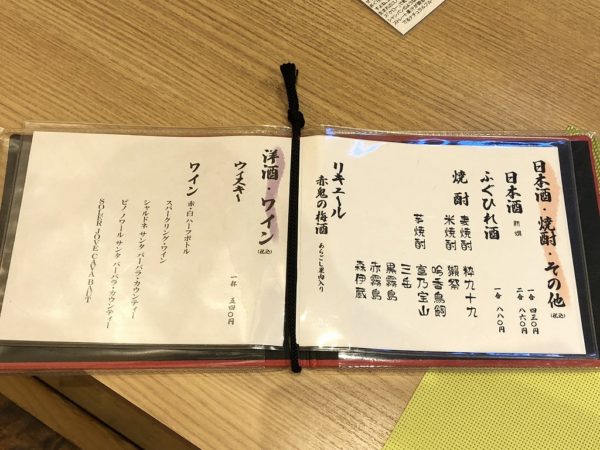 日本酒・焼酎・その他(税込)
日本酒 熱燗 一合 四三〇円
二合 八六〇円
ふぐひれ酒 一合 八八〇円
焼酎 麦焼酎 粋九九十九
米焼酎 獺祭
吟香鳥飼
芋焼酎 富乃宝山
三岳
黒霧島
赤霧島
森伊蔵
リキュール
赤鬼の梅酒 あらごし果肉入り
洋酒・ワイン(税込)
ウイスキー 一杯 五四〇円
ワイン
赤・白 ハーフボトル
スパークリング・ワイン
シャルドネ サンタ バーバラ・カウンティー
ピノ ノワール サンタ バーバラ・カウンティー
SOLER JOVE CAVA BAUT